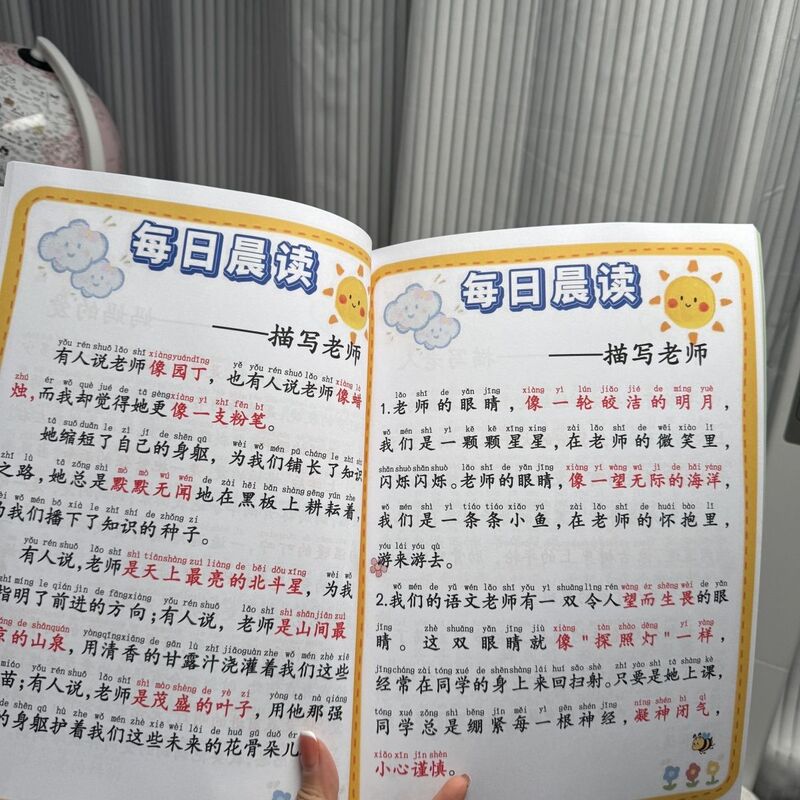 每日晨读
——描写老师
yǒu rén shuō lǎo shī xiàng yuán dīng yě yǒu rén shuō lǎo shī xiàng là
有人说老师像园丁，也有人说老师像蜡
zhú ér wǒ què jué de tā gèng xiàng yì zhī fěn bǐ
烛，而我却觉得她更像一支粉笔。
tā suō duǎn le zì jǐ de shēn qū wèi wǒ men pū cháng le zhī shi
她缩短了自己的身躯，为我们铺长了知识
zhī lù tā zǒng shì mò mò wú wén de zài hēi bǎn shàng gēng yún zhe
之路，她总是默默无闻地在黑板上耕耘着，
wǒ men bō xià le zhī shi de zhǒng zi
为我们播下了知识的种子。
yǒu rén shuō lǎo shī shì tiān shàng zuì liàng de běi dǒu xīng wèi wǒ
有人说，老师是天上最亮的北斗星，为我
zhǐ míng le qián jìn de fāng xiàng yǒu rén shuō lǎo shī shì shān jiān zuì
指明了前进的方向；有人说，老师是山间最
de shān quán yòng qīng xiāng de gān lù zhī jiāo guàn zhe wǒ men zhè xiē
凉的山泉，用清香的甘露汁浇灌着我们这些
miáo yǒu rén shuō lǎo shī shì mào shèng de yè zi yòng tā nà qiáng
苗；有人说，老师是茂盛的叶子，用他那强
de shēn qū hù zhe wǒ men zhè xiē wèi lái de huā gǔ duǒ ér
的身躯护着我们这些未来的花骨朵儿
每日晨读
——描写老师
lǎo shī de yǎn jīng xiàng yì lún jiǎo jié de míng yuè
1.老师的眼睛，像一轮皎洁的明月，
wǒ men shì yì kē kē xīng xīng zài lǎo shī de wēi xiào lǐ
我们是一颗颗星星，在老师的微笑里，
shǎn shuò shǎn shuò lǎo shī de yǎn jīng xiàng yí wàng wú jì de hǎi yáng
闪烁闪烁。老师的眼睛，像一望无际的海洋，
wǒ men shì yì tiáo tiáo xiǎo yú zài lǎo shī de huái bào lǐ
我们是一条条小鱼，在老师的怀抱里，
yóu lái yóu qù
游来游去。
wǒ men de yǔ wén lǎo shī yǒu yì shuāng lìng rén wàng ér shēng wèi de yǎn
2.我们的语文老师有一双令人望而生畏的眼
jīng zhè shuāng yǎn jīng jiù xiàng tàn zhào dēng yí yàng
睛。这双眼睛就像"探照灯"一样，
jīng cháng zài tóng xué de shēn shàng lái huí sǎo shè zhǐ yào shì tā shàng kè
经常在同学的身上来回扫射。只要是她上课，
tóng xué zǒng shì běng jǐn měi yì gēn shén jīng níng shén bì qì
同学总是绷紧每一根神经，凝神闭气，
xiǎo xīn jǐn shèn
小心谨慎。